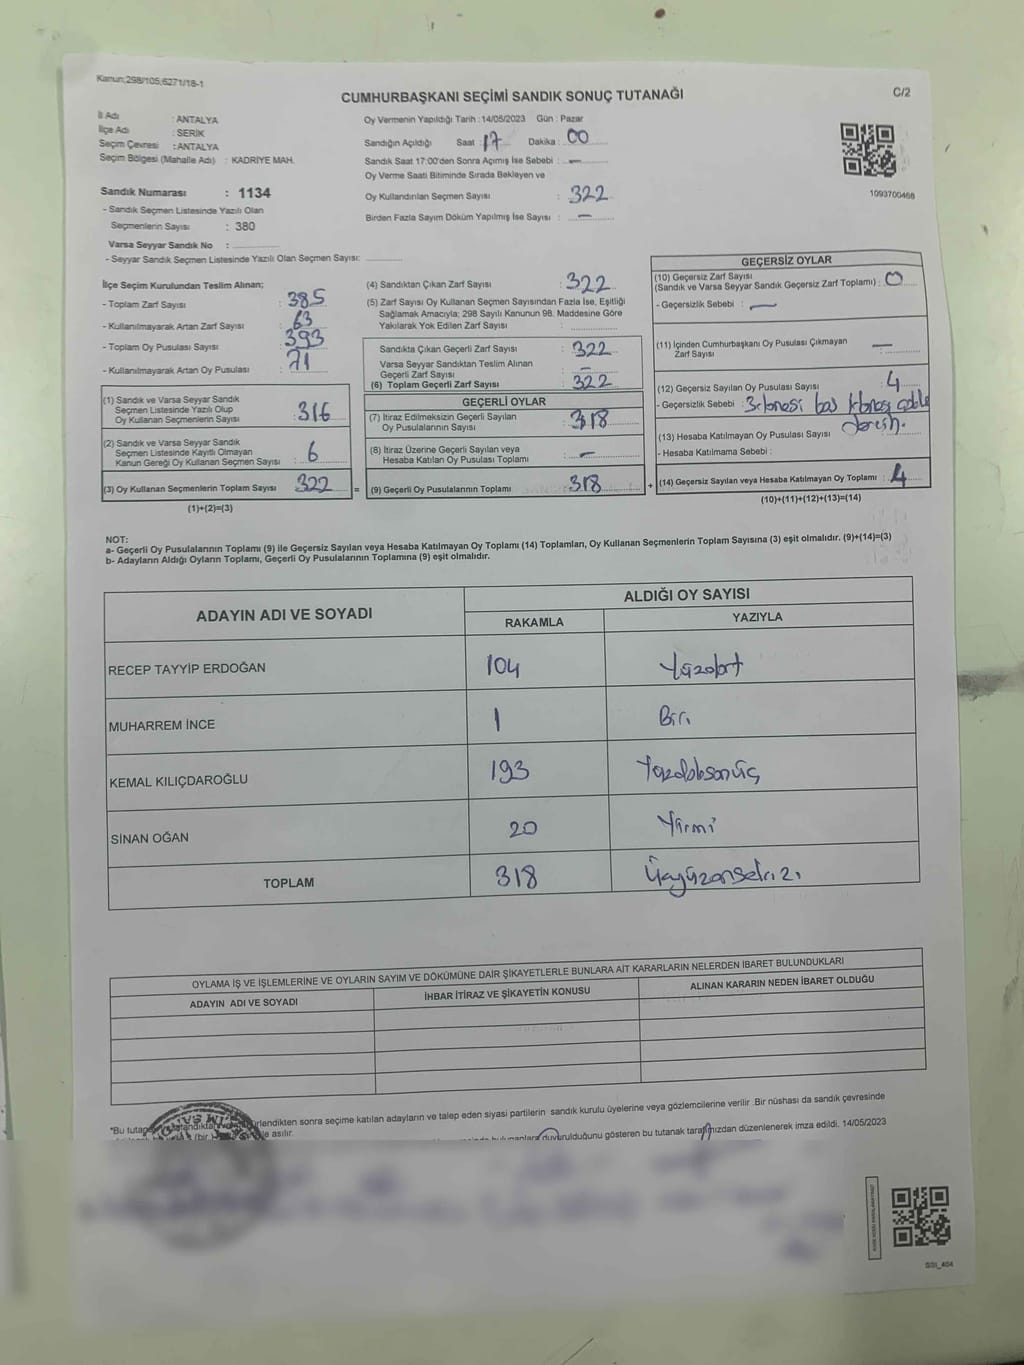 Kanun;298/105,6271/18-1
C/2
CUMHURBAŞKANI SEÇİMİ SANDIK SONUÇ TUTANAĞI
İl Adı : ANTALYA
İlçe Adı : SERİK
Seçim Çevresi : ANTALYA
Seçim Bölgesi (Mahalle Adı) : KADRİYE MAH.
Sandık Numarası : 1134
- Sandık Seçmen Listesinde Yazılı Olan
Seçmenlerin Sayısı : 380
Varsa Seyyar Sandık No :
- Seyyar Sandık Seçmen Listesinde Yazılı Olan Seçmen Sayısı:
Oy Vermenin Yapıldığı Tarih : 14/05/2023 Gün : Pazar
Sandığın Açıldığı Saat : 17 Dakika : 00
Sandık Saat 17:00'den Sonra Açımış İse Sebebi : —
Oy Verme Saati Bitiminde Sırada Bekleyen ve
Oy Kullandırılan Seçmen Sayısı : 322
Birden Fazla Sayım Döküm Yapılmış İse Sayısı : —
1093700468
İlçe Seçim Kurulundan Teslim Alınan;
- Toplam Zarf Sayısı : 385
- Kullanılmayarak Artan Zarf Sayısı : 63
- Toplam Oy Pusulası Sayısı : 393
- Kullanılmayarak Artan Oy Pusulası : 71
(1) Sandık ve Varsa Seyyar Sandık
Seçmen Listesinde Yazılı Olup
Oy Kullanan Seçmenlerin Sayısı : 316
(2) Sandık ve Varsa Seyyar Sandık
Seçmen Listesinde Kayıtlı Olmayan
Kanun Gereği Oy Kullanan Seçmen Sayısı : 6
(3) Oy Kullanan Seçmenlerin Toplam Sayısı : 322
(1)+(2)=(3)
(4) Sandıktan Çıkan Zarf Sayısı : 322
(5) Zarf Sayısı Oy Kullanan Seçmen Sayısından Fazla İse, Eşitliği
Sağlamak Amacıyla; 298 Sayılı Kanunun 98. Maddesine Göre
Yakılarak Yok Edilen Zarf Sayısı :
Sandıkta Çıkan Geçerli Zarf Sayısı : 322
Varsa Seyyar Sandıktan Teslim Alınan
Geçerli Zarf Sayısı : —
(6) Toplam Geçerli Zarf Sayısı : 322
GEÇERLİ OYLAR
(7) İtiraz Edilmeksizin Geçerli Sayılan
Oy Pusulalarının Sayısı : 318
(8) İtiraz Üzerine Geçerli Sayılan veya
Hesaba Katılan Oy Pusulası Toplamı : —
= (9) Geçerli Oy Pusulalarının Toplamı : 318
GEÇERSİZ OYLAR
(10) Geçersiz Zarf Sayısı
(Sandık ve Varsa Seyyar Sandık Geçersiz Zarf Toplamı) : 0
- Geçersizlik Sebebi : —
(11) İçinden Cumhurbaşkanı Oy Pusulası Çıkmayan
Zarf Sayısı : —
(12) Geçersiz Sayılan Oy Pusulası Sayısı : 4
- Geçersizlik Sebebi :
(13) Hesaba Katılmayan Oy Pusulası Sayısı
- Hesaba Katılmama Sebebi :
+ (14) Geçersiz Sayılan veya Hesaba Katılmayan Oy Toplamı : 4
(10)+(11)+(12)+(13)=(14)
NOT:
a- Geçerli Oy Pusulalarının Toplamı (9) ile Geçersiz Sayılan veya Hesaba Katılmayan Oy Toplamı (14) Toplamları, Oy Kullanan Seçmenlerin Toplam Sayısına (3) eşit olmalıdır. (9)+(14)=(3)
b- Adayların Aldığı Oyların Toplamı, Geçerli Oy Pusulalarının Toplamına (9) eşit olmalıdır.
ADAYIN ADI VE SOYADI
ALDIĞI OY SAYISI
RAKAMLA YAZIYLA
RECEP TAYYİP ERDOĞAN 104 Yüzdört
MUHARREM İNCE 1 Biri
KEMAL KILIÇDAROĞLU 193 Yüzdoksanüç
SİNAN OĞAN 20 Yirmi
TOPLAM 318 Üçyüzonsekizi
OYLAMA İŞ VE İŞLEMLERİNE VE OYLARIN SAYIM VE DÖKÜMÜNE DAİR ŞİKAYETLERLE BUNLARA AİT KARARLARIN NELERDEN İBARET BULUNDUKLARI
ADAYIN ADI VE SOYADI
İHBAR İTİRAZ VE ŞİKAYETİN KONUSU
ALINAN KARARIN NEDEN İBARET OLDUĞU
*Bu tutanağın sandıkta irlendikten sonra seçime katılan adayların ve talep eden siyasi partilerin sandık kurulu üyelerine veya gözlemcilerine verilir .Bir nüshası da sandık çevresinde
(bir) le asılır.
duyurulduğunu gösteren bu tutanak tarafımızdan düzenlenerek imza edildi. 14/05/2023
SSI_404